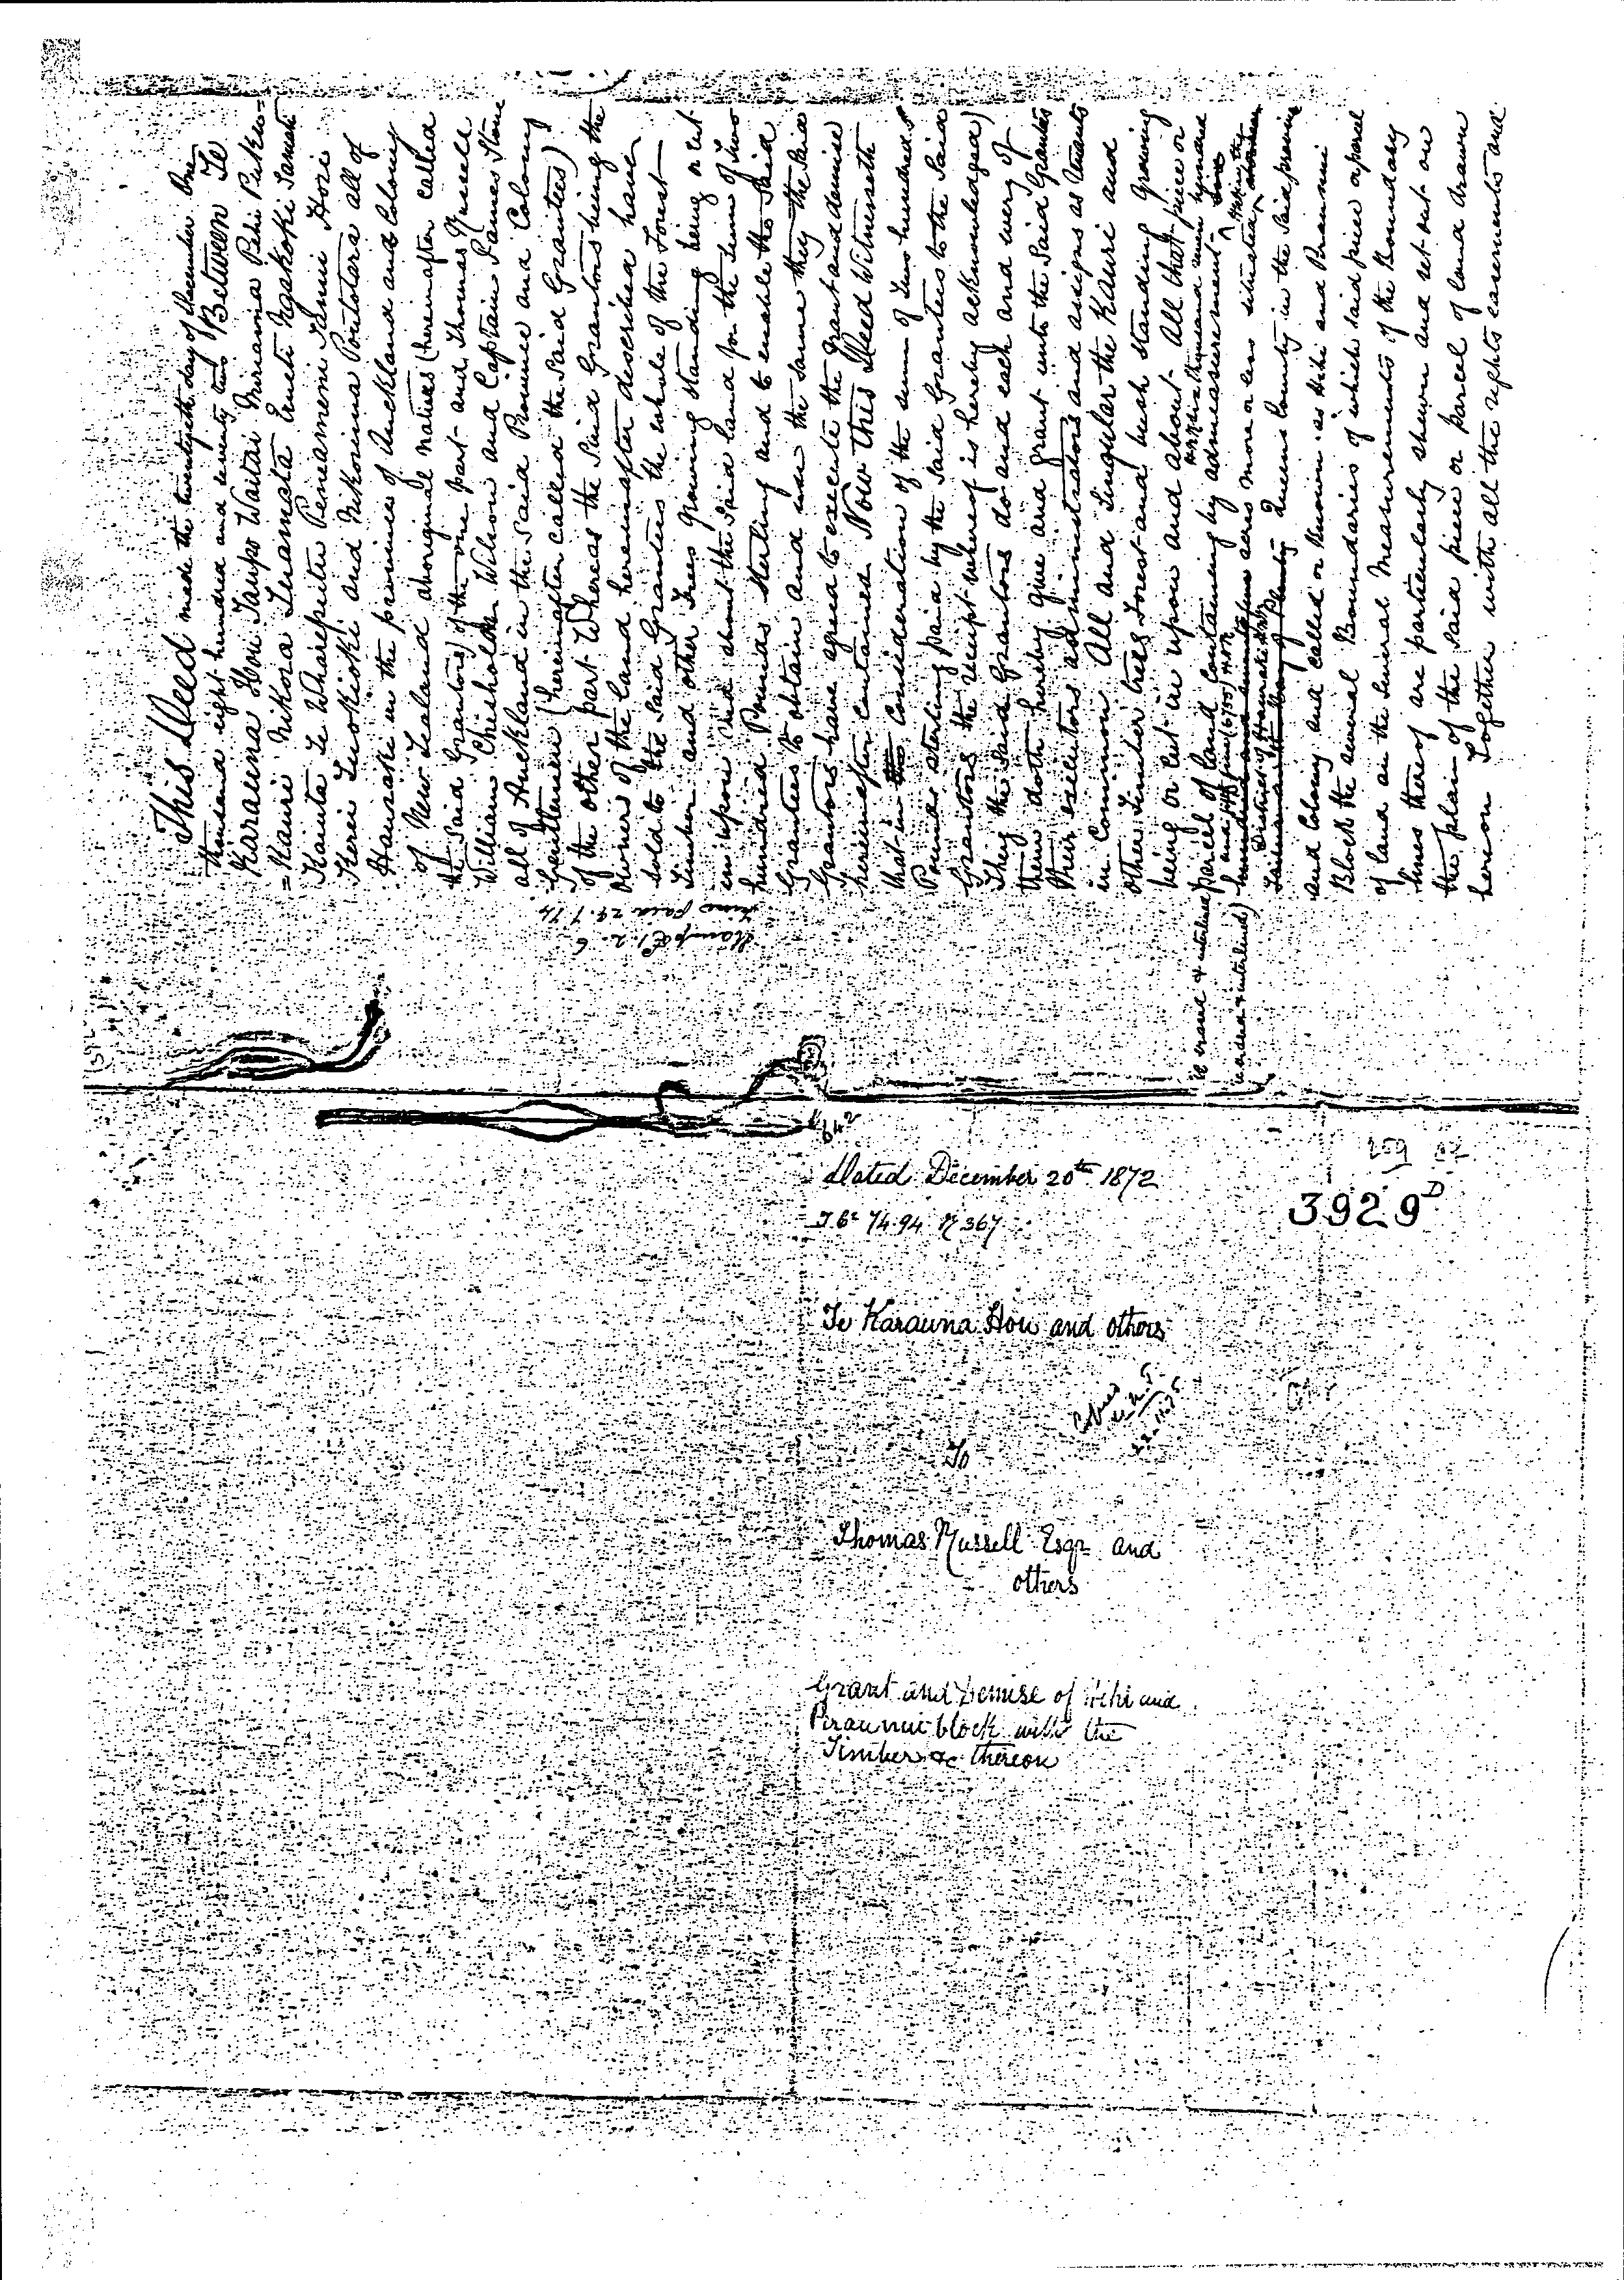 This Deed made the twentyeth day of December One
thousand eight hundred and seventy two Between Te
Karauna Hou Taupo Waitai Miriama Pehi Pukeo=
=Kauri Nikora Teramata Eruti Ngakoki Tamati
Kaunta Te Wharepaitu Peneamene Tanui Hori
Kerei Tuokioki and Nikorima Poutotara all of
Hauraki in the provinces of Auckland and Colony
of New Zealand aboriginal natives (hereinafter called
the Said Grantors) of the one part and Thomas Russell
William Chisholm Wilson and Captain James Stone
all of Auckland in the Said Province and Colony
Gentlemen (hereinafter called the Said Grantees)
of the other part Whereas the Said Grantors being the
Owners of the land hereinafter described have
sold to the Said Grantees the whole of the Forest
Timber and other Trees growing standing being or cut
in upon and about the Said land for the sum of Two
hundred Pounds sterling and to enable the Said
Grantees to obtain and use the same they the Said
Grantors have agreed to execute the Grant and demise
hereinafter contained Now this Deed Witnesseth
that in Consideration of the sum of Two hundred
Pounds sterling paid by the Said Grantees to the Said
Grantors (the receipt whereof is hereby acknowledged)
They the Said Grantors do and each and every of
them doth hereby give and Grant unto the Said Grantees
their executors administrators and assigns as tenants
in Common All and Singular the Kauri and
other Timber trees Forest and bush standing Growing
being or cut in upon and about All that piece or
parcel of land Containing by admeasurement
acres more or less situated
District of Hauraki
Queens County in the Said province
and Colony and called or known as Hihi and Piraunui
Block the several Boundaries of which said piece or parcel
of land and the Lineral Measurements of the Boundary
lines thereof are particularly shewn and set out on
the plan of the Said piece or parcel of land drawn
hereon Together with all the rights easements and
Stamp £1. 2. 6
Fine Paid 29.7.74
Dated December 20th 1872
3929D
Te Karauna Hou and others
To
Thomas Russell Esqr and
others
Grant and Demise of Hihi and
Piraunui block with the
Timber &c thereon